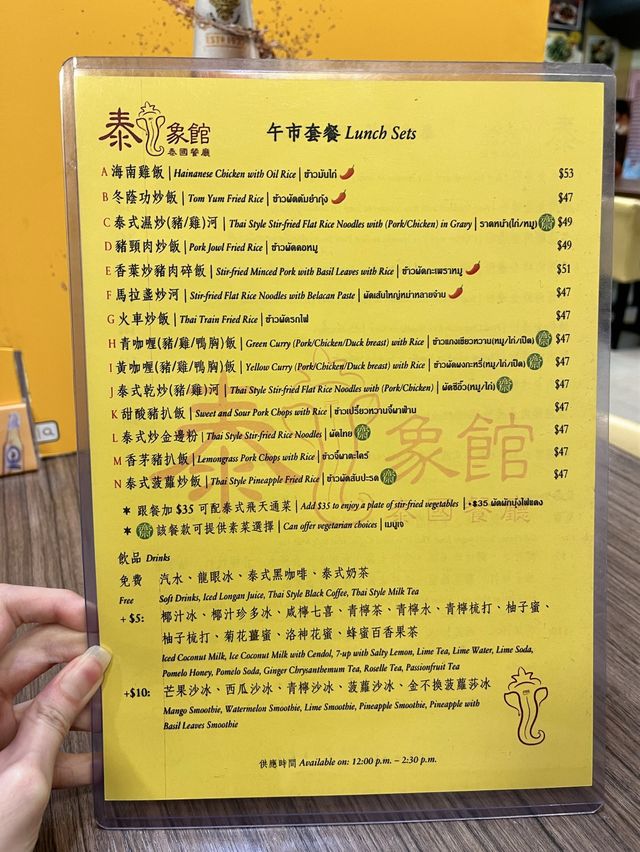 泰象館
泰國餐廳
午市套餐 Lunch Sets
A 海南雞飯 | Hainanese Chicken with Oil Rice | ข้าวมันไก่ $53
B 冬蔭功炒飯 | Tom Yum Fried Rice | ข้าวผัดต้มยำกุ้ง $47
C 泰式濕炒(豬/雞)河 | Thai Style Stir-fried Flat Rice Noodles with (Pork/Chicken) in Gravy | ราดหน้า(ไก่/หมู) $49
D 豬頸肉炒飯 | Pork Jowl Fried Rice | ข้าวผัดคอหมู $49
E 香葉炒豬肉碎飯 | Stir-fried Minced Pork with Basil Leaves with Rice | ข้าวผัดกะเพราหมู $51
F 馬拉盞炒河 | Stir-fried Flat Rice Noodles with Belacan Paste | ผัดเส้นใหญ่หม่าหลายจ้าน $47
G 火車炒飯 | Thai Train Fried Rice | ข้าวผัดรถไฟ $47
H 青咖喱(豬/雞/鴨胸)飯 | Green Curry (Pork/Chicken/Duck breast) with Rice | ข้าวแกงเขียวหวาน(หมู/ไก่/เป็ด) $47
I 黃咖喱(豬/雞/鴨胸)飯 | Yellow Curry (Pork/Chicken/Duck breast) with Rice | ข้าวผัดผงกะหรี่(หมู/ไก่/เป็ด) $47
J 泰式乾炒(豬/雞)河 | Thai Style Stir-fried Flat Rice Noodles with (Pork/Chicken) | ผัดซีอิ๊ว(หมู/ไก่) $47
K 甜酸豬扒飯 | Sweet and Sour Pork Chops with Rice | ข้าวเปรี้ยวหวานจี๋พาฟาน $47
L 泰式炒金邊粉 | Thai Style Stir-fried Rice Noodles | ผัดไทย $47
M 香茅豬扒飯 | Lemongrass Pork Chops with Rice | ข้าวจี๋พาตะไคร้ $47
N 泰式菠蘿炒飯 | Thai Style Pineapple Fried Rice | ข้าวผัดสับปะรด $47
✶ 跟餐加 $35 可配泰式飛天通菜 | Add $35 to enjoy a plate of stir-fried vegetables | +$35 ผัดผักบุ้งไฟแดง
✶ 該餐款可提供素菜選擇 | Can offer vegetarian choices | เมนูเจ
飲品 Drinks
免費 汽水、龍眼冰、泰式黑咖啡、泰式奶茶
Free Soft Drinks, Iced Longan Juice, Thai Style Black Coffee, Thai Style Milk Tea
+ $5: 椰汁冰、椰汁珍多冰、咸檸七喜、青檸茶、青檸水、青檸梳打、柚子蜜、
柚子梳打、菊花薑蜜、洛神花蜜、蜂蜜百香果茶
Iced Coconut Milk, Ice Coconut Milk with Cendol, 7-up with Salty Lemon, Lime Tea, Lime Water, Lime Soda,
Pomelo Honey, Pomelo Soda, Ginger Chrysanthemum Tea, Roselle Tea, Passionfruit Tea
+$10: 芒果沙冰、西瓜沙冰、青檸沙冰、菠蘿沙冰、金不換菠蘿沙冰
Mango Smoothie, Watermelon Smoothie, Lime Smoothie, Pineapple Smoothie, Pineapple with
Basil Leaves Smoothie
供應時間 Available on: 12:00 p.m. – 2:30 p.m.